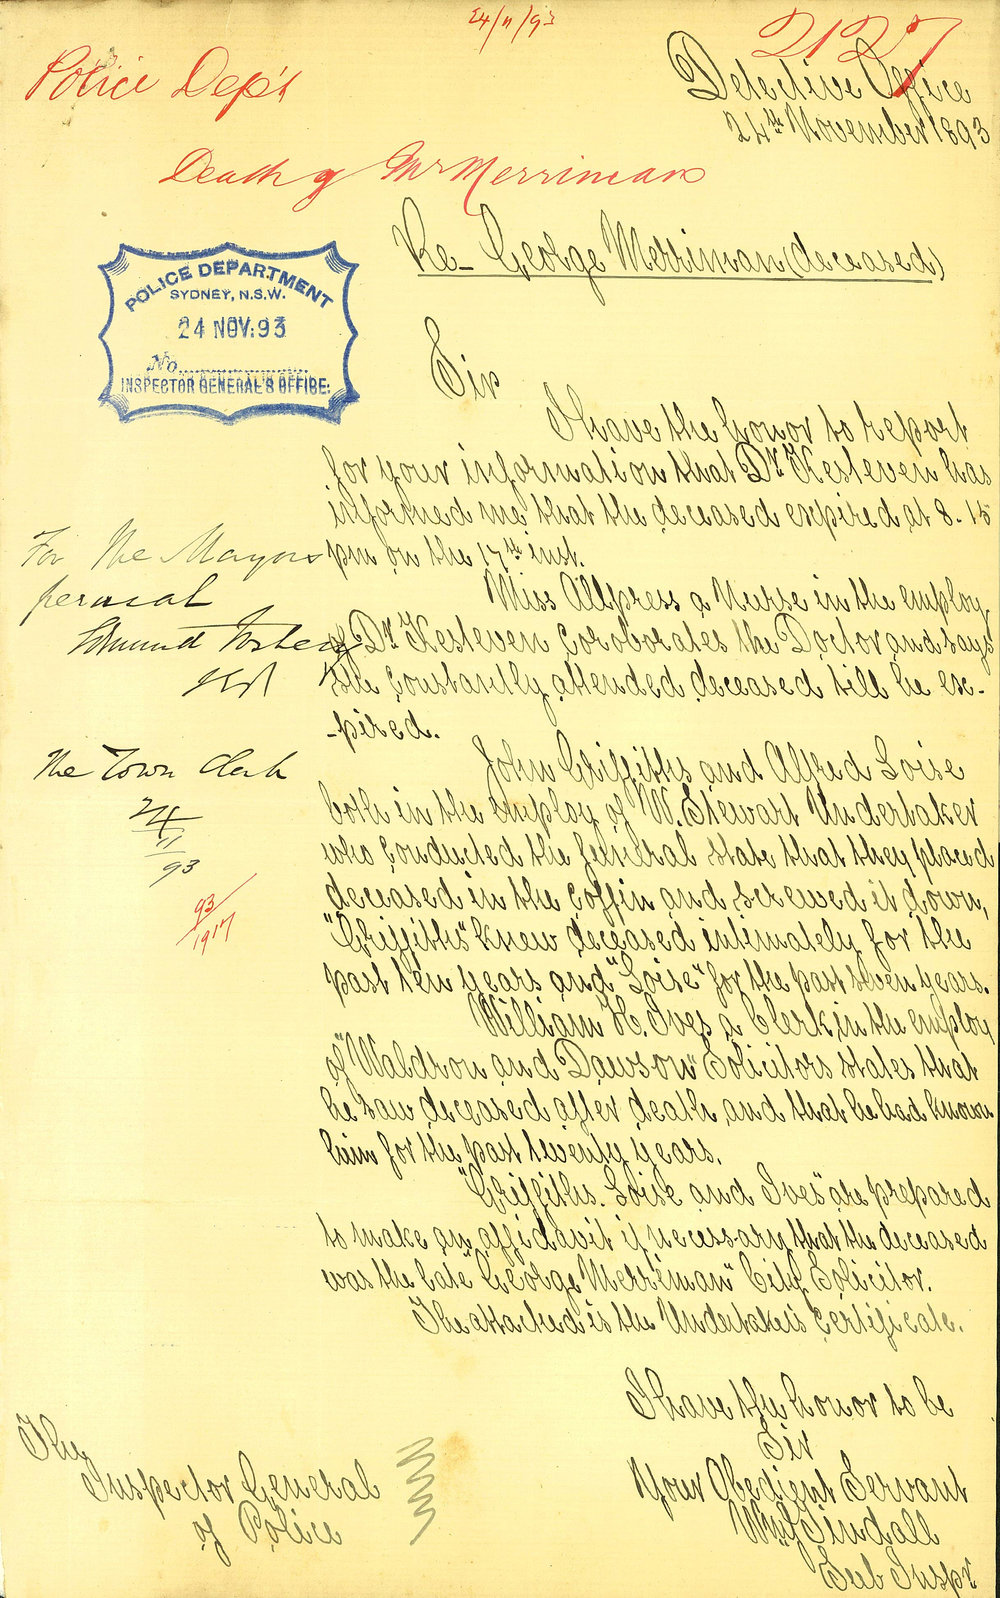 24/11/93
2127
Police Dep't
Detective Office
24th November 1893
Death of Mr Merriman
Re- George Merriman (deceased)
POLICE DEPARTMENT
SYDNEY, N.S.W.
24 NOV: 93
No
INSPECTOR GENERAL'S OFFICE:
Sir
I have the honor to report
for your information that Dr Kesteven has
informed me that the deceased expired at 8.15
pm on the 17th inst.
Miss Allpress a Nurse in the employ
of Dr Kesteven coroborates the Doctor and says
she constantly attended deceased till he ex-
-pired.
John Griffiths and Alfred Loise
both in the employ of W. Stewart Undertaker
who conducted the funeral state that they placed
deceased in the coffin and screwed it down,
"Griffiths" knew deceased intimately for the
past ten years and "Loise" for the past seven years.
William H. Ives a Clerk in the employ
of "Waldron and Dawson" Solicitors states that
he saw deceased after death and that he had known
him for the past twenty years.
"Griffiths. Loise and Ives" are prepared
to make an affidavit if necessary that the deceased
was the late "George Merriman" City Solicitor.
The attached is the Undertaker's certificate.
I have the honor to be
Sir
Your Obedient Servant
Wm Tindall
Sub Inspr
The
Inspector General
of Police
For the Mayors
perusal
Edmund Fosbery
IGP
The Town Clerk
24
11
93
93/1917